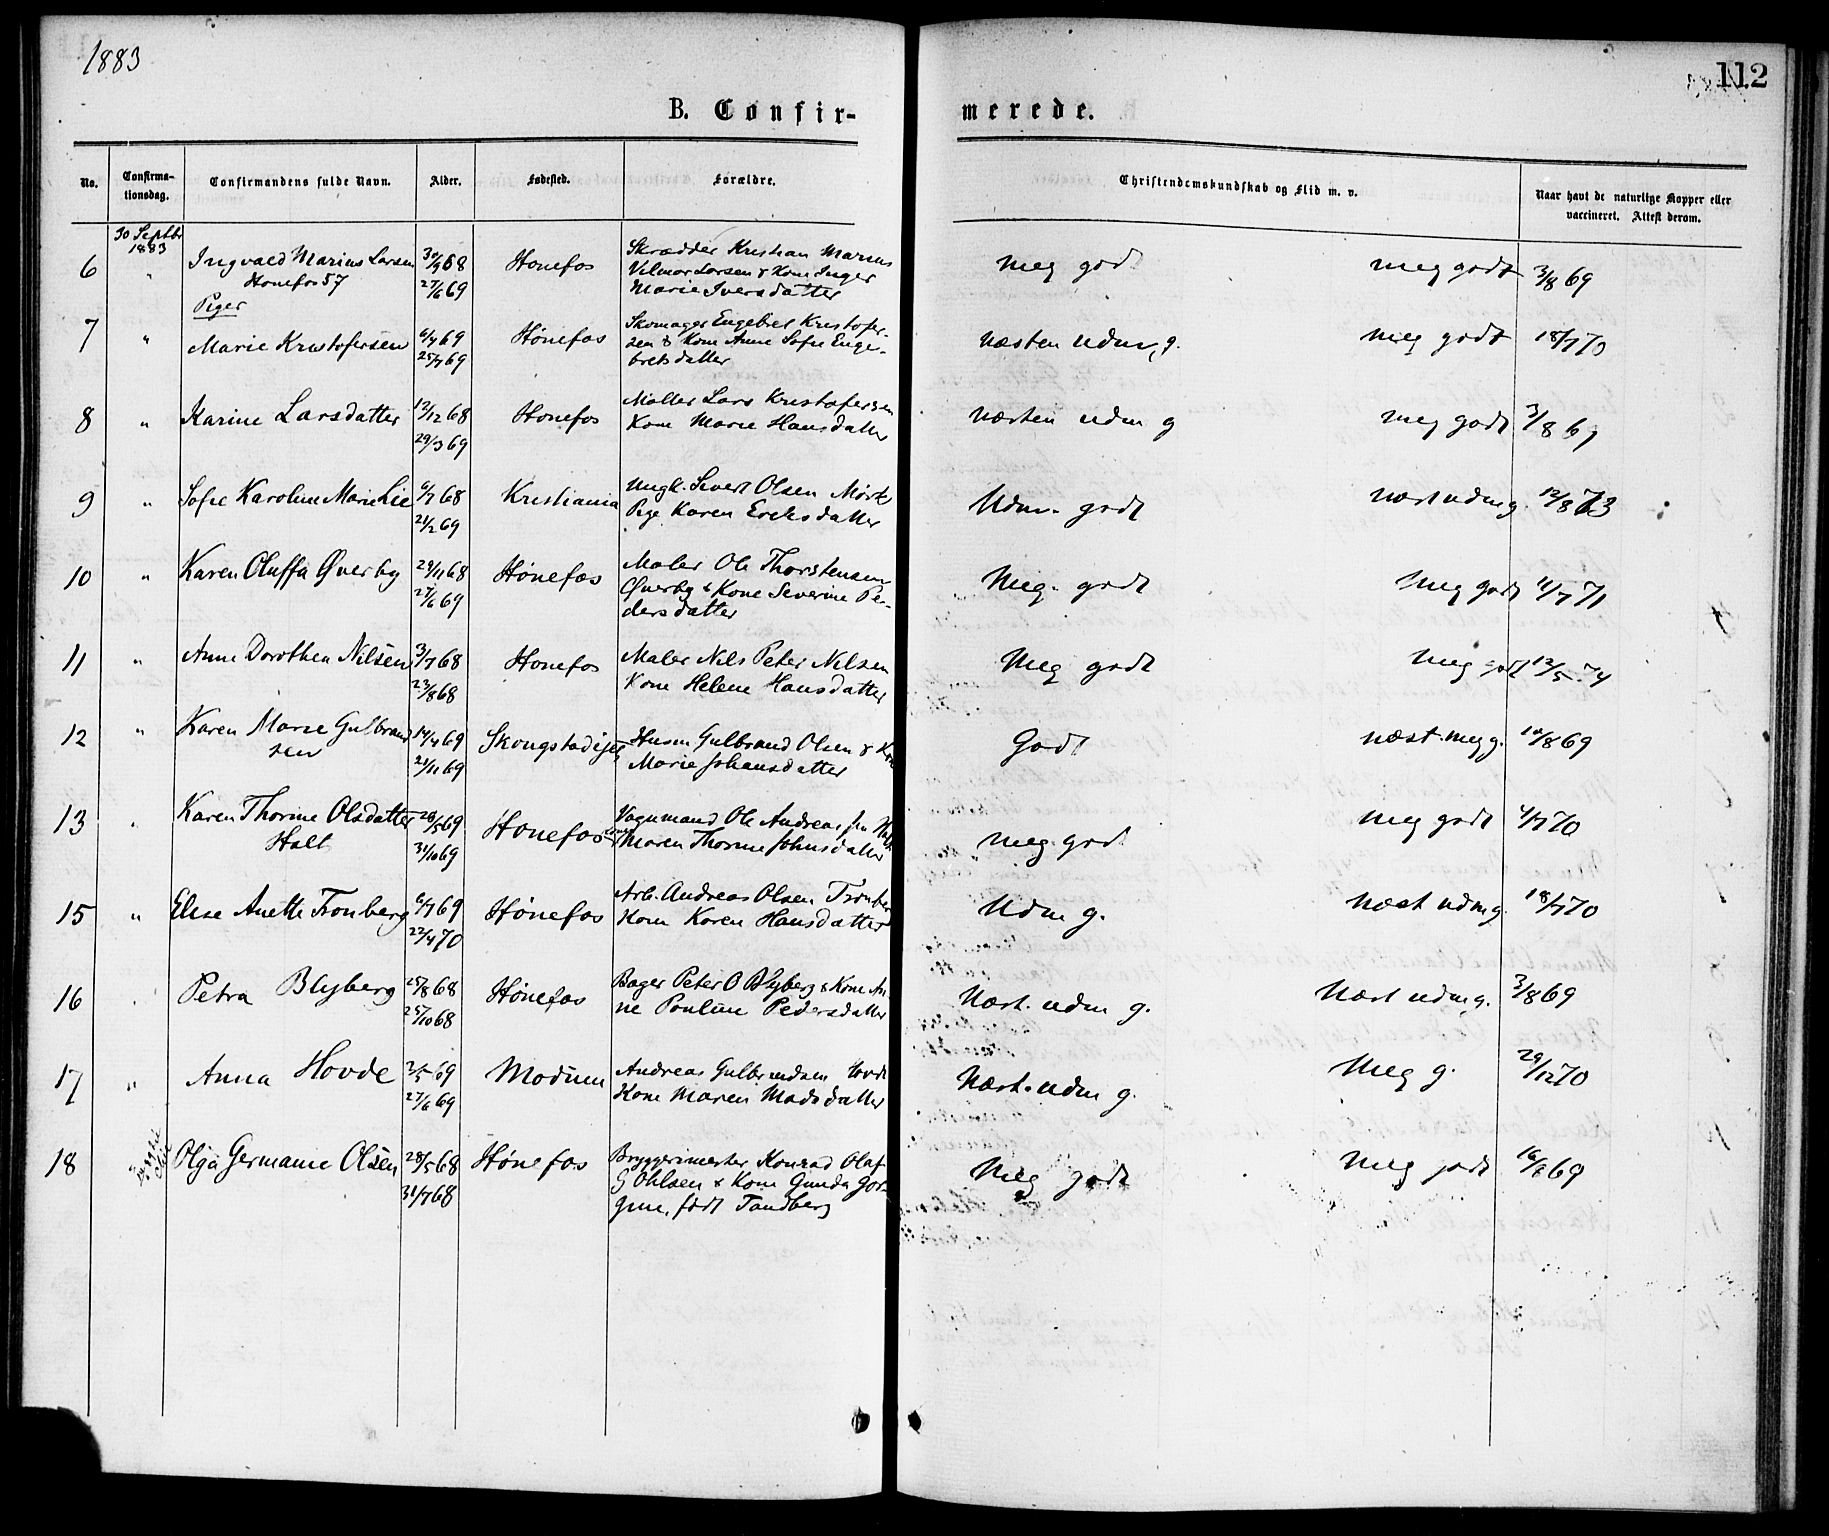 1883
112
B. Confir-
merede.
No.
Confirma-
tionsdag.
Confirmandens fulde Navn.
Alder.
Fødested.
Forældre.
Christendomskundskab og Flid m. v.
Naar havt de naturlige Kopper eller
vaccineret. Attest derom.
30 Septbr
1883
6 " Ingvald Marius Larsen 30/9 68 Honefos Skrædder Kristian Marius meg godt meg godt 3/8 69
Honefos 57 27/6 69 Vilmar Larsen & Kone Inger
Marie Iversdatter
Piger
7 " Marie Kristofersen 6/4 69 Hønefos Skomager Engebret Kristofer- næsten udm. g. meg godt 18/7 70
25/7 69 sen & Kone Anne Sofie Enge-
bretsdatter
8 " Karine Larsdatter 12/12 68 Honefos Møller Lars Kristofersen næsten udm g meg godt 3/8 69
29/3 69 Kone Marie Hansdatter
9 " Sofie Karoline Marie Lie 6/7 68 Kristiania Ungk. Sivert Olsen Mørk Udm. godt næst udm g. 12/8 73
21/2 69 Pige Karen Eriksdatter
10 " Karen Oluffa Øverby 29/11 68 Hønefos Maler Ole Thorstensen Meg. godt Meg godt 4/7 71
27/6 69 Øverby & Kone Severine Pe-
dersdatter
11 " Anne Dorothea Nilsen 3/7 68 Honefos Maler Nils Peter Nilsen Meg godt Meg godt 12/5 74
23/8 68 Kone Helene Hansdatter
12 " Karen Marie Gulbrand 14/4 69 Skongstadejet Husm Gulbrand Olsen & Kone Godt næst. meg g. 10/8 69
sen 21/11 69 Marie Johansdatter
13 " Karen Thorine Olsdatter 28/5 69 Honefos Vognmand Ole Andreas meg. godt meg godt 4/7 70
Holt 31/10 69 Maren Thorine Johnsdatter
15 " Elise Anette Tronberg 6/7 69 Hønefos Arb. Andreas Olsen Tronberg Udm g. Næst udm g. 18/7 70
22/4 70 Kone Karen Hansdatter
16 " Petra Blyberg 25/8 68 Hønefos Bager Peter O Blyberg & Kone An- Næst. udm g. Næst udm g. 3/8 69
25/10 68 ne Pouline Pedersdatter
17 " Anna Hovde 2/5 69 Modum Andreas Gulbrandsen Hovde Næst. udm g. Meg g. 29/12 70
27/6 69 Kone Maren Madsdatter
18 Olga Germanie Olsen 28/5 68 Hønefos Bryggerimester Konrad Olaf Meg godt Meg godt 69
31/7 68 G Ohlsen & Kone Gunda Jor-
gine, født Tandberg